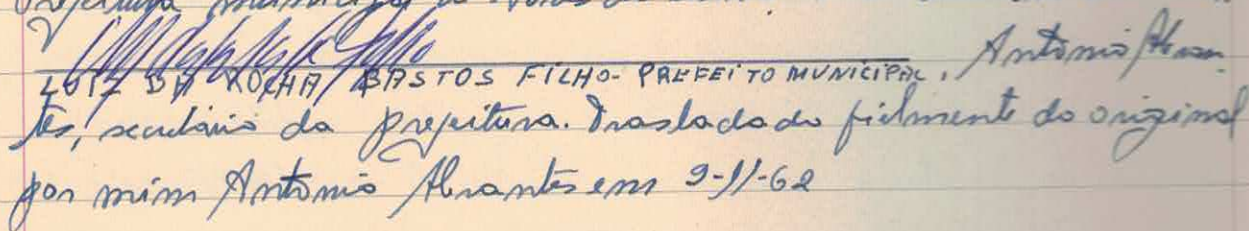 Prefeitura municipal
LUIZ DA ROCHA BASTOS FILHO - PREFEITO MUNICIPAL. Antonio Abran-
tes, secretário da prefeitura. Trasladado fielmente do original
por mim Antonio Abrantes em 9-11-62